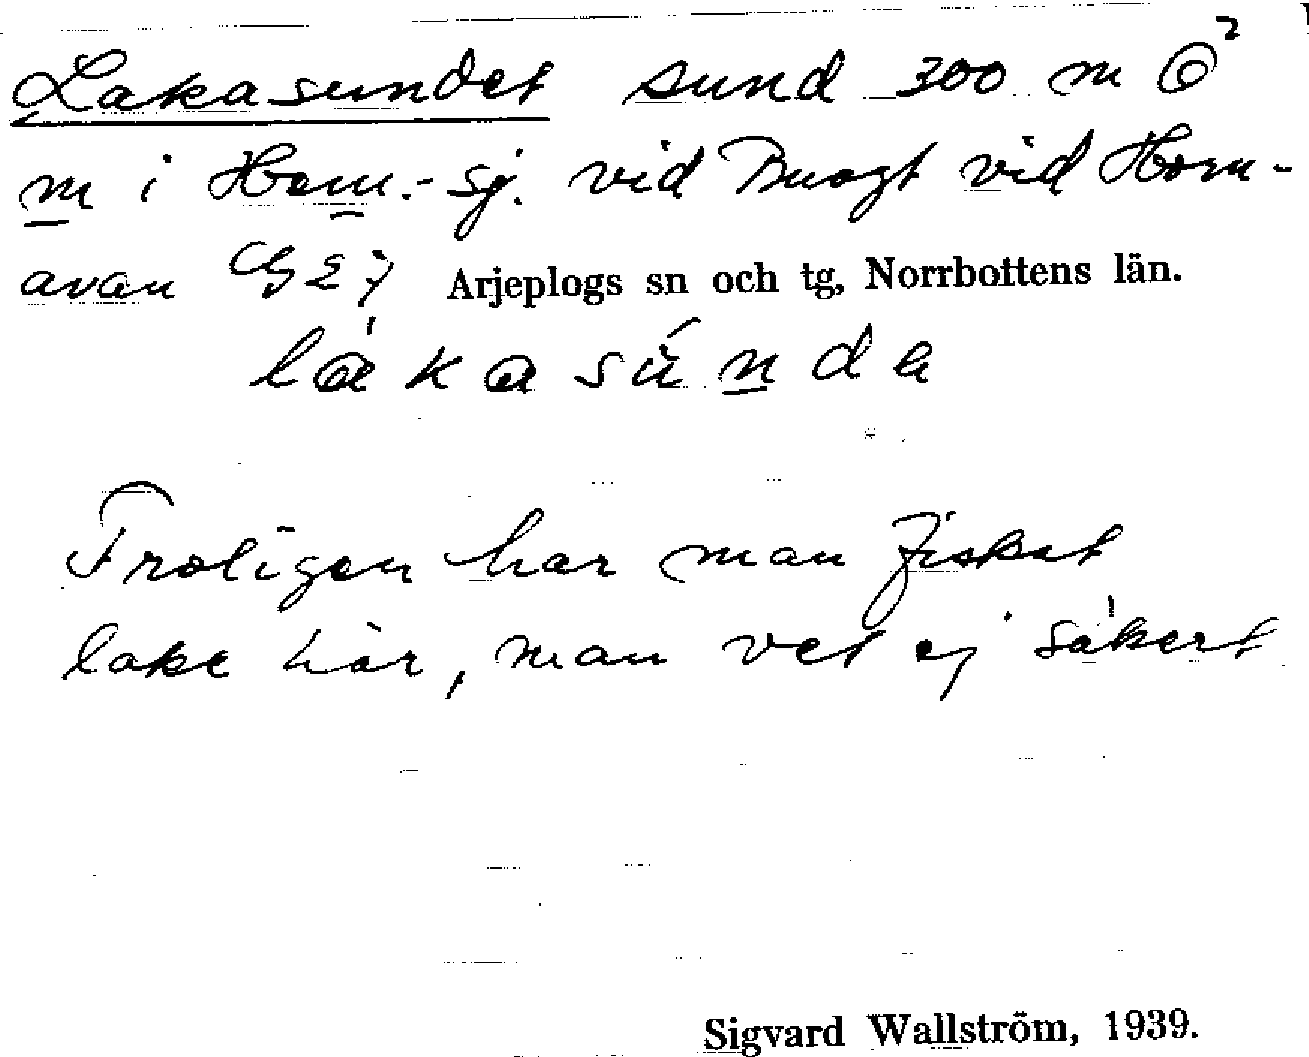 Lakasundet sund 300 m Ö²
m i Horn.-sj. vid Buogt vid Horn-
avan Arjeplogs sn och tg, Norrbottens län.
lákasúnda
Troligen har man fiskat
lake här, man vet ej säkert
Sigvard Wallström, 1939.